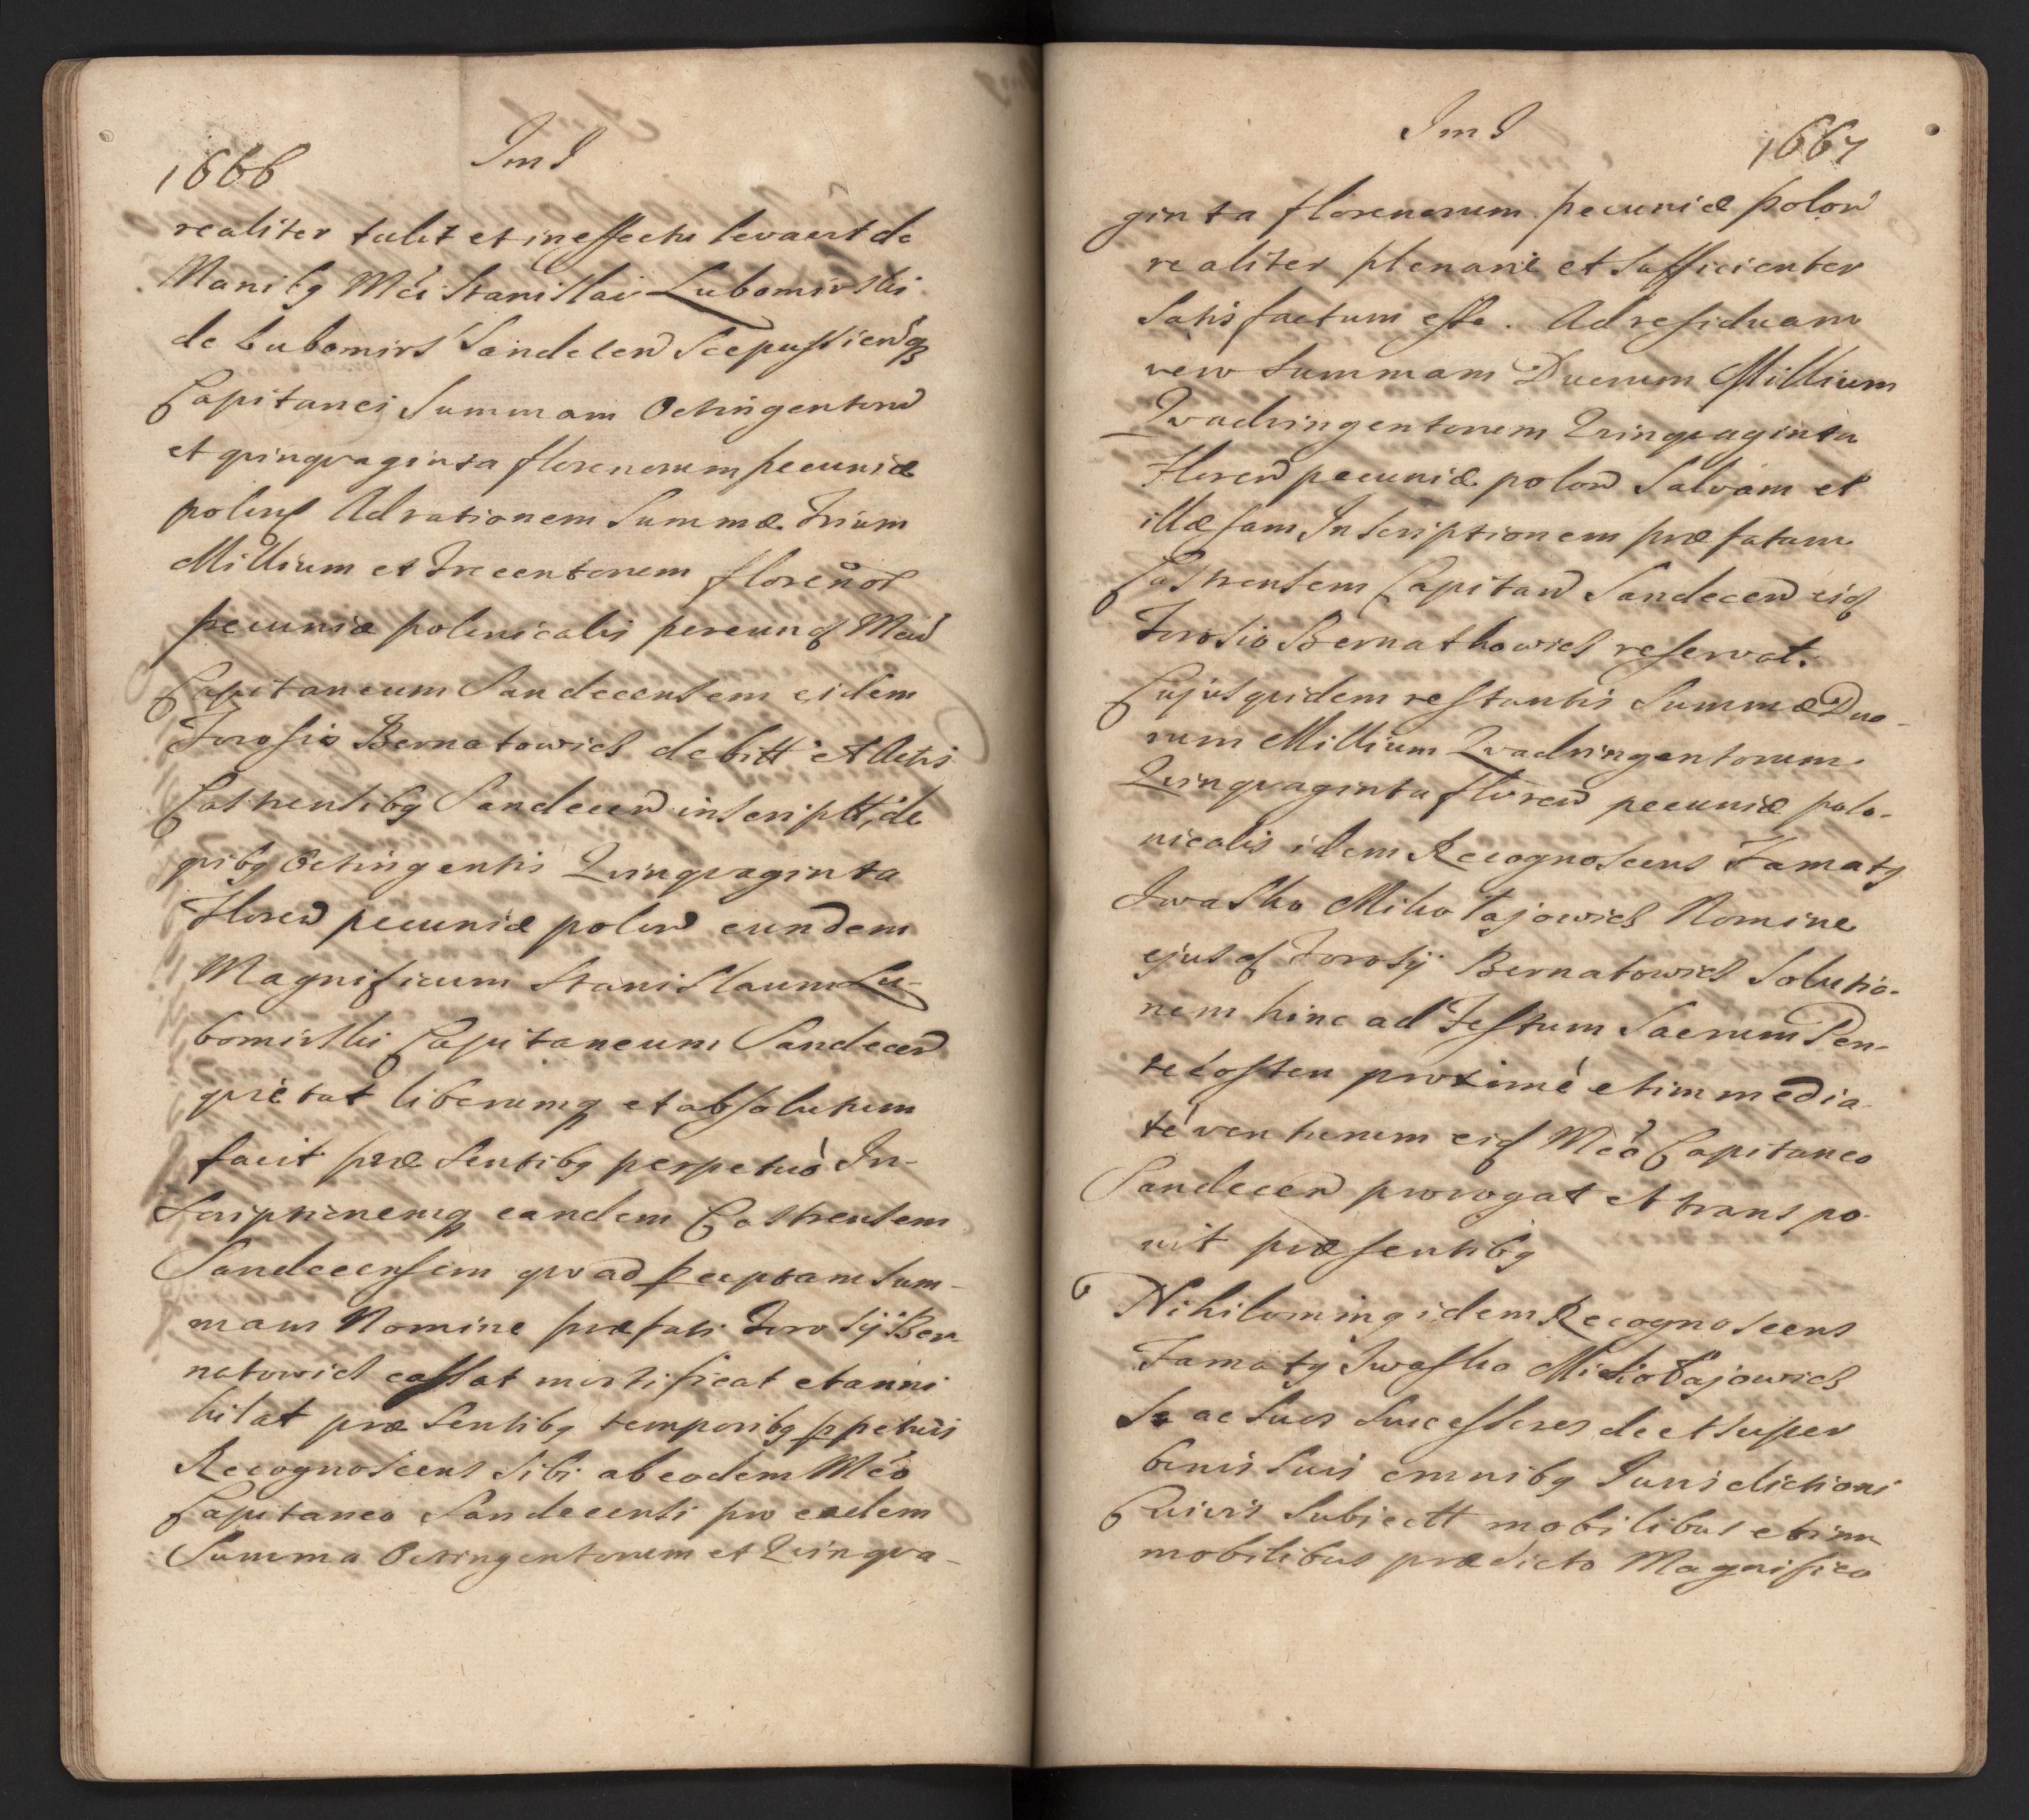 1666 Im I
realiter tulit et in effectu levavit de
Manibq Mci Stanislai Lubomirski
de Lubomirs Sandecen Scepussienq
Capitanei Summam Octingenton
et qvinqvaginta florenorum pecuniæ
polnq Ad rationem Summæ Trium
Millium et Trecentorum florenor
pecuniæ polonicalis per eunq Mcu
Capitaneum Sandecensem eidem
Torosio Bernatowich debitt et Actis
Castrensibq Sandecen inscriptt, de
qvibq Octingentis Qvinqvaginta
Floren pecuniæ polon eundem
Magnificum Stanislaum Lu-
bomirski Capitaneum Sandecen
qvietat liberumq et absolutum
facit præsentibq perpetuò In-
scriptionemq eandem Castrensem
Sandecensem qvoad pceptam sum-
mam Nomine præfati Torosij Ber
natowich cassat mortificat et anni
hilat præsentibq temporibq ppetuis
Recognoscens sibi ab eodem Mco
Capitaneo Sandecensi pro eadem
Summa Octingentorum et Qvinqva-
Im I 1667
ginta florenorum pecuniæ polon
realiter plenarie et sufficienter
Satisfactum esse. Ad residuam
vero Summam Duorum Millium
Qvadringentorum Qvinqvaginta
Floren pecuniæ polon Salvam et
illæsam Inscriptionem præfatam
Castrensem Capitan Sandecen eid
Torosio Bernathowich reservat.
Cujus qvidem restantis Summæ Duo-
rum Millium Qvadringentorum
Qvinqvaginta floren pecuniæ polo-
nicalis idem Recognoscens Famatq
Iwasko Mikołajowich Nomine
ejusd Torosij Bernatowich Solutio-
nem hinc ad Festum Sacrum Pen-
tecosten proximè et immedia
tè venturum eid Mco Capitaneo
Sandecen prorogat et transpo
nit præsentibq
Nihilominq idem Recognoscens
Famatq Iwasko Mikołajowich
Se ac suos Successores de et super
bonis suis omnibq Iurisdictioni
Cuivis Subiectt mobilibus et im
mobilibus prædicto Magnifico